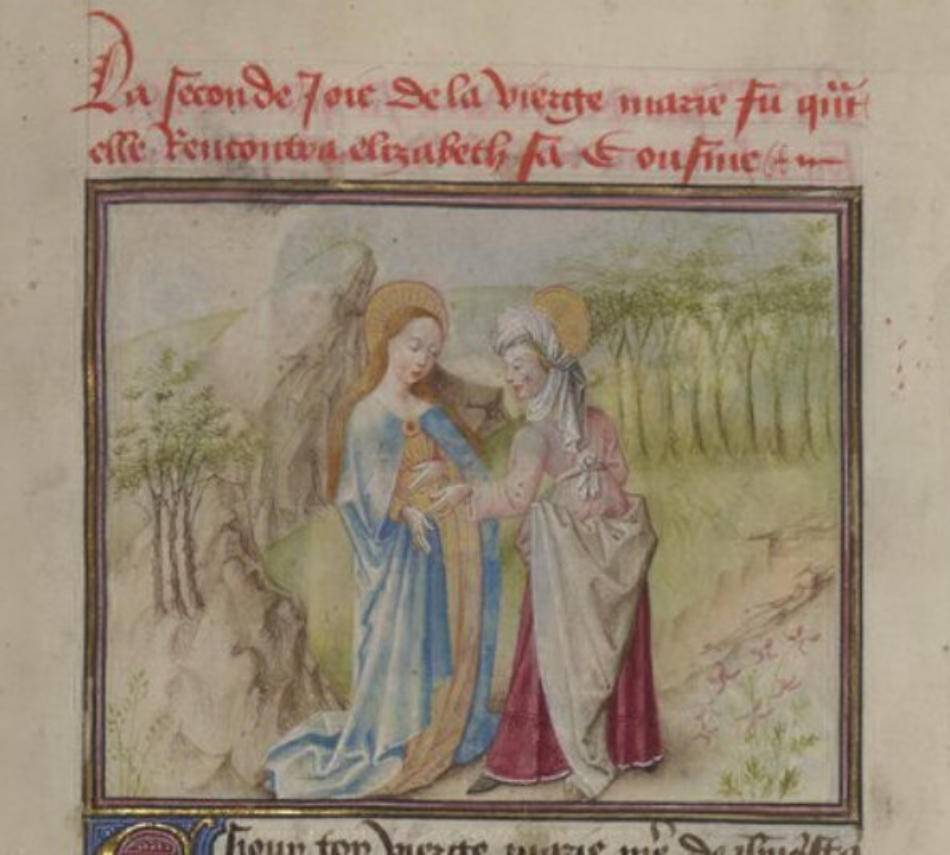 La seconde Joie de la vierge marie fu qũt
elle Rencontra elizabeth sa Cousine
Esioup toy vierge marie